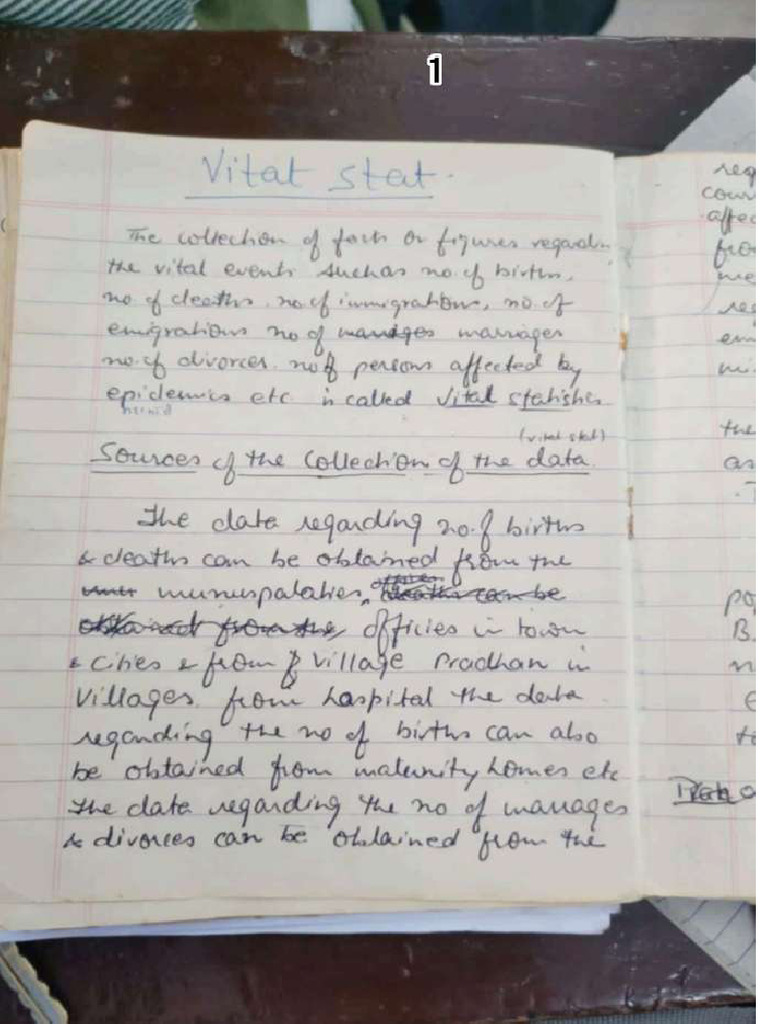 1
Vital stat.
The collection of facts or figures regardin
the vital events such as no. of births,
no of deaths, no of immigrations, no. of
emigrations no of marriages
no. of divorces. no of persons affected by
epidemics etc is called Vital statistics
(vital stat)
Sources of the Collection of the data.
The data regarding no. of births
& deaths can be obtained from the
munuspalaties,
obtained from the officies in town
& cities & from village Pradhan in
Villages. from hospital the data
regarding the no of births can also
be obtained from maternity homes etc
The data regarding the no of marrages
& divorces can be obtained from the
req
cour
affec
fro
me
reg
em
mi
the
as
po
B.
n
to